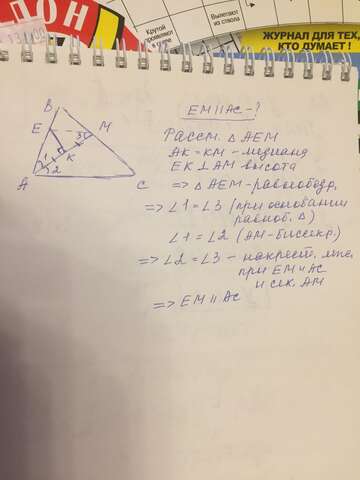 ДОН
Крутой
проявляют
Вылетают
из ствола
ЖУРНАЛ ДЛЯ ТЕХ,
КТО ДУМАЕТ !
B
E
M
3
K
1
2
A
C
EM || AC - ?
Рассм. △ AEM
AK = KM - медиана
EK ⊥ AM высота
=> △ AEM - равнобедр.
=> ∠1 = ∠3 (при основании
равноб. △)
∠1 = ∠2 (AM - биссектр.)
=> ∠2 = ∠3 - накрест. леж.
при EM и AC
и сек. AM
=> EM || AC